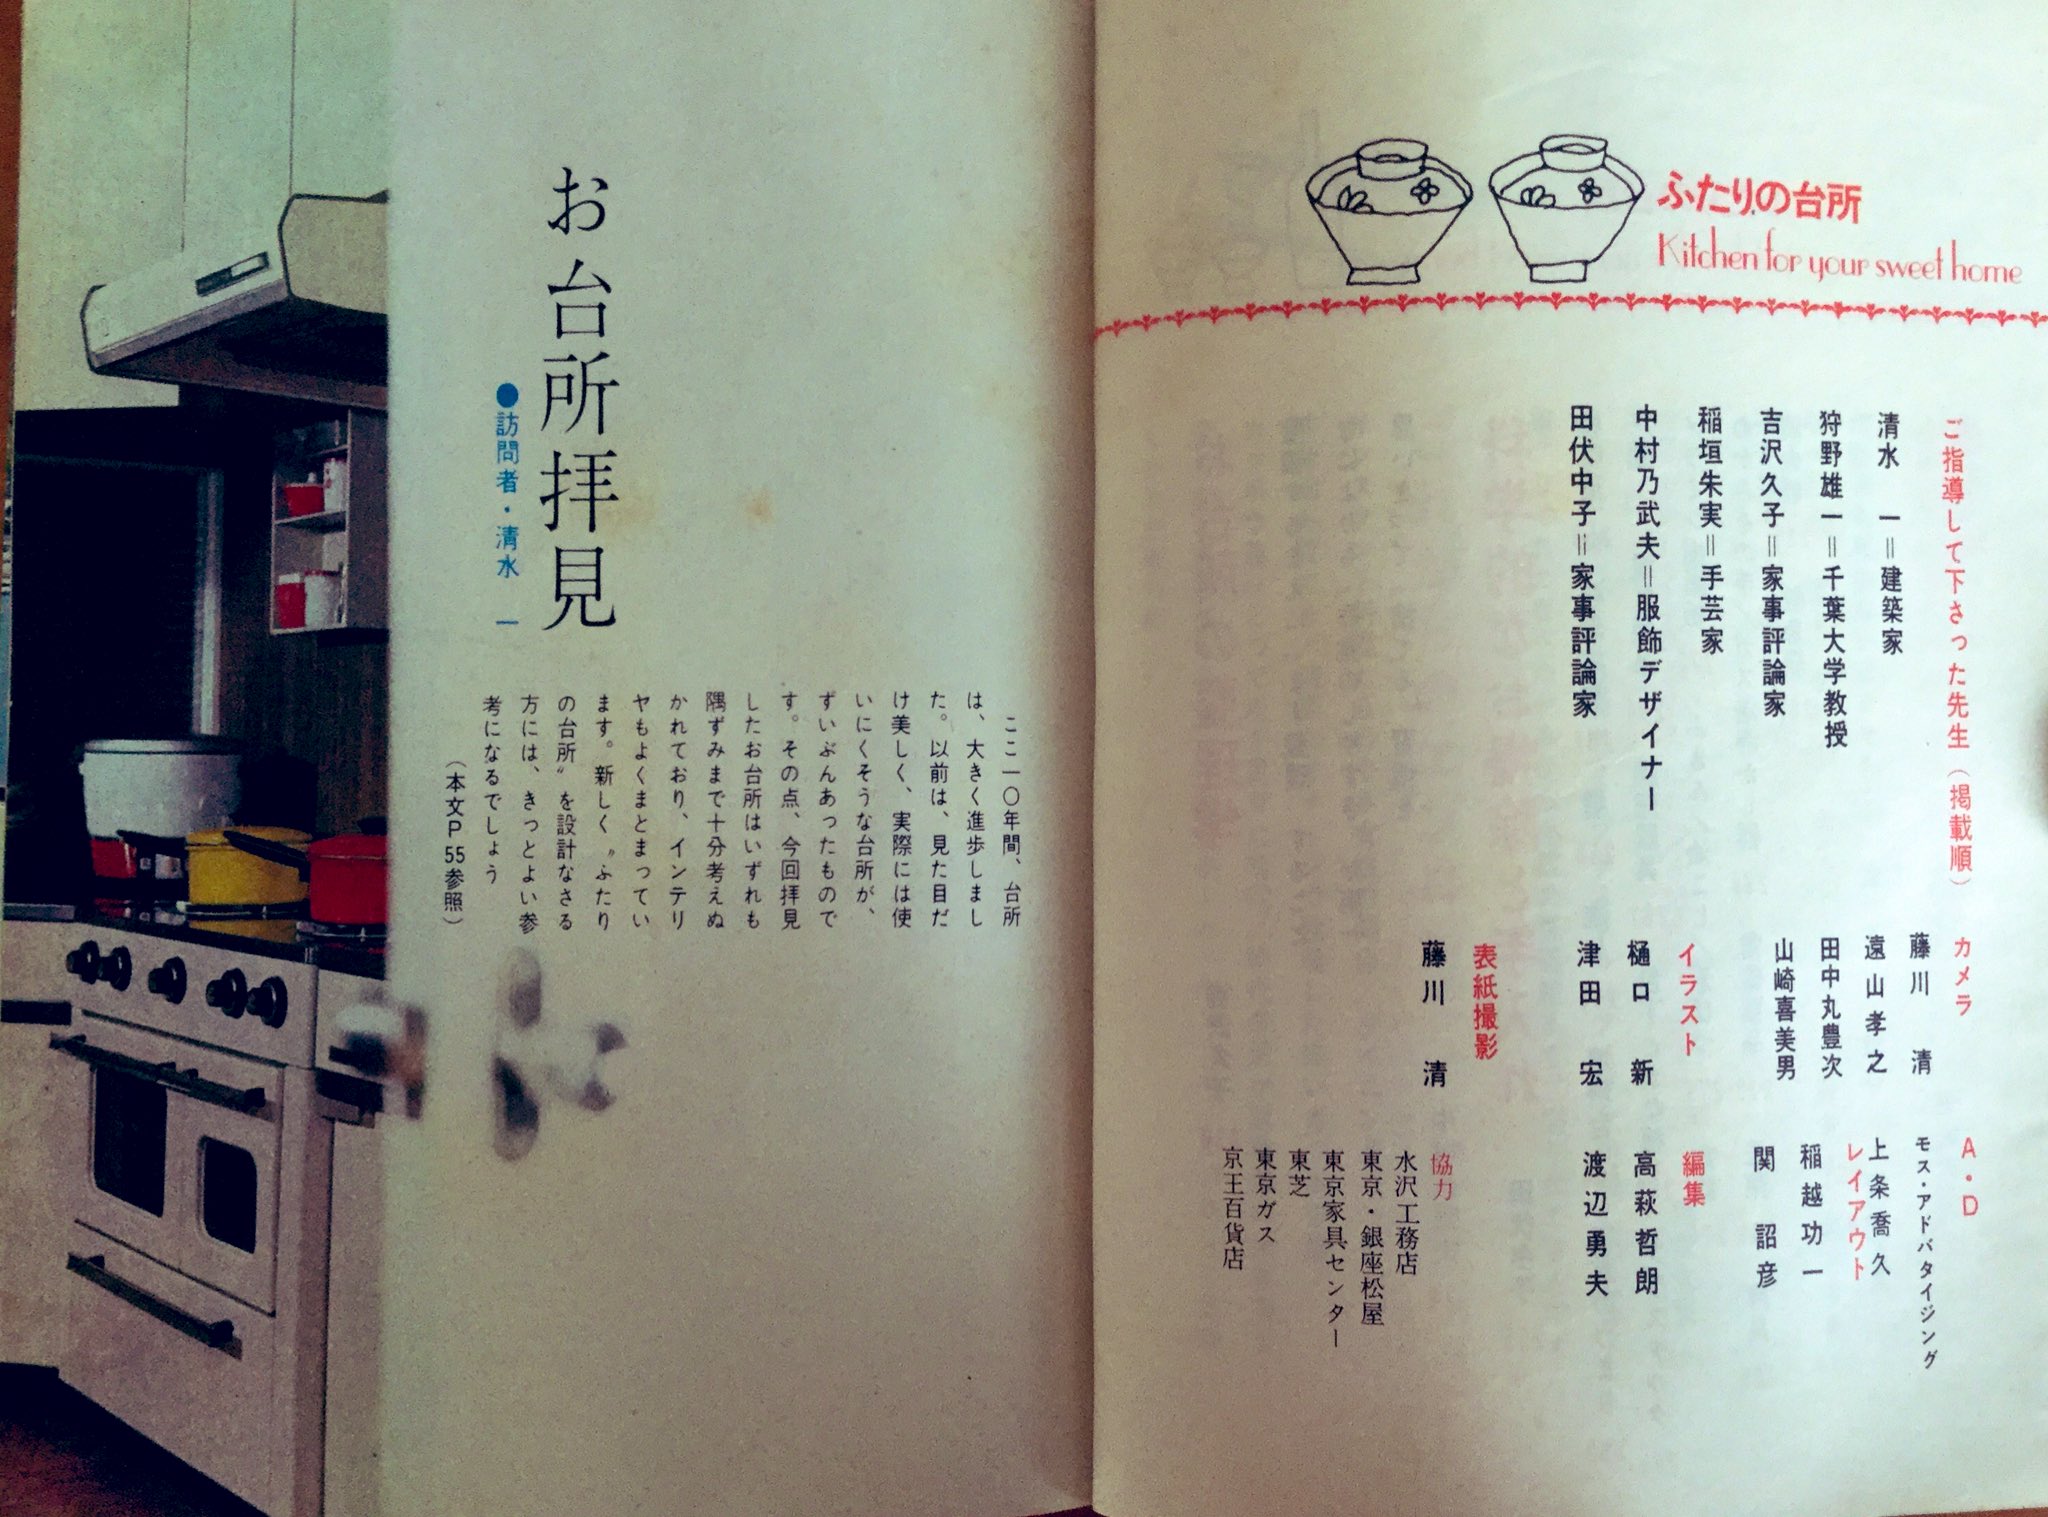 ふたりの台所
Kitchen for your sweet home
ご指導して下さった先生（掲載順）
清水　一＝建築家
狩野雄一＝千葉大学教授
吉沢久子＝家事評論家
稲垣朱実＝手芸家
中村乃武夫＝服飾デザイナー
田伏中子＝家事評論家
カメラ
藤川　清
遠山孝之
田中丸豊次
山崎喜美男
イラスト
樋口　新
津田　宏
表紙撮影
藤川　清
A・D
モス・アドバタイジング
上条喬久
レイアウト
稲越功一
関　詔彦
編集
高萩哲朗
渡辺勇夫
協力
水沢工務店
東京・銀座松屋
東京家具センター
東芝
東京ガス
京王百貨店
お台所拝見
●訪問者・清水　一
ここ一〇年間、台所
は、大きく進歩しまし
た。以前は、見た目だ
け美しく、実際には使
いにくそうな台所が、
ずいぶんあったもので
す。その点、今回拝見
したお台所はいずれも
隅ずみまで十分考えぬ
かれており、インテリ
ヤもよくまとまってい
ます。新しく〝ふたり
の台所〟を設計なさる
方には、きっとよい参
考になるでしょう
（本文P55参照）